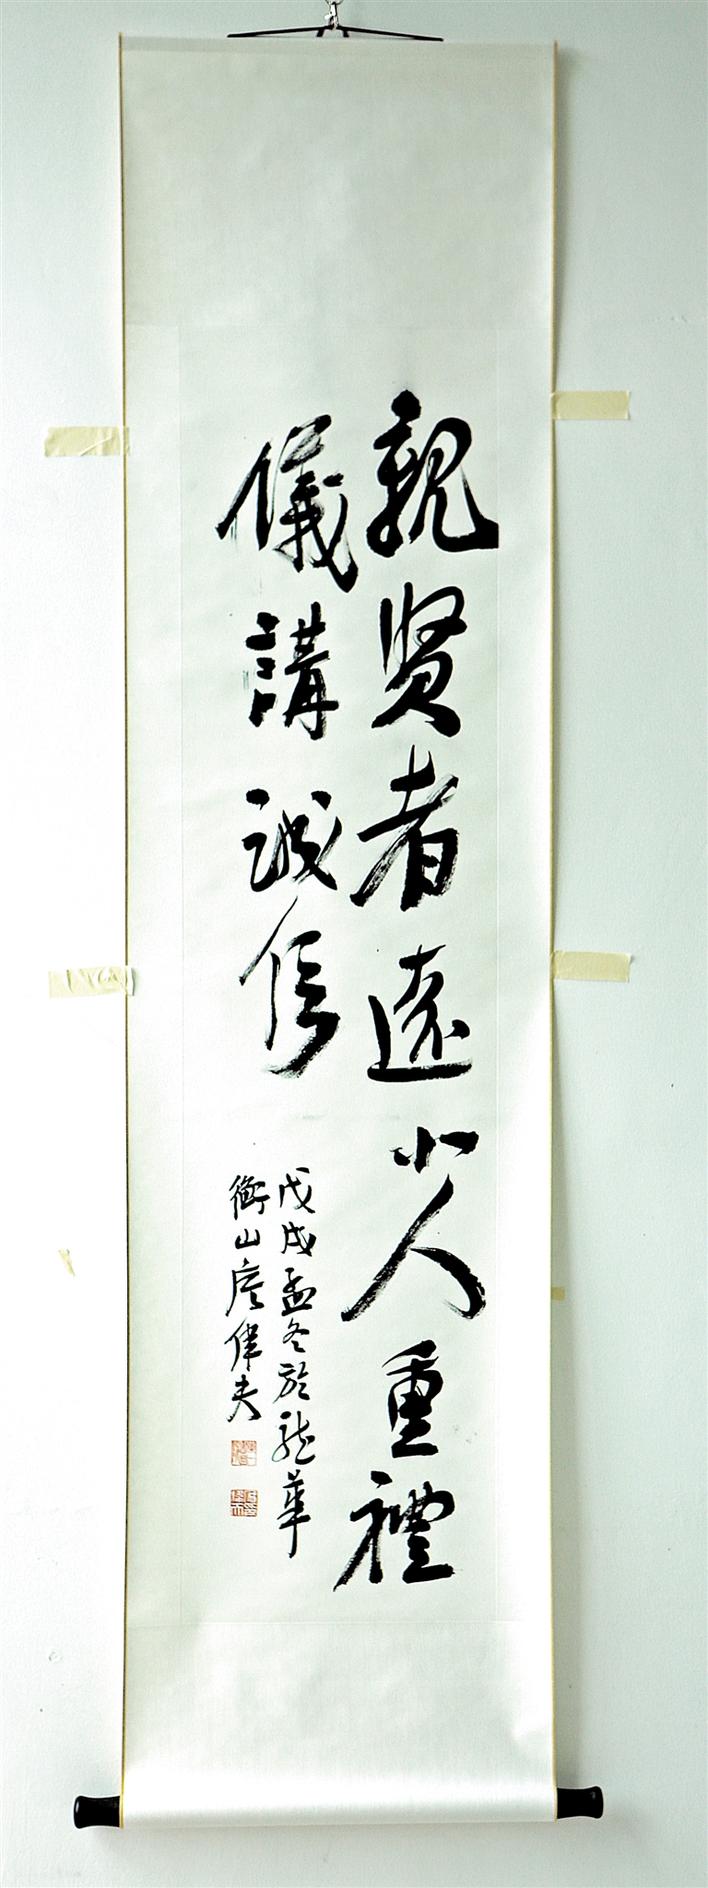 親贤者遠小人重禮
儀講誠信
戊戌孟冬於龍華
衡山彦偉夫